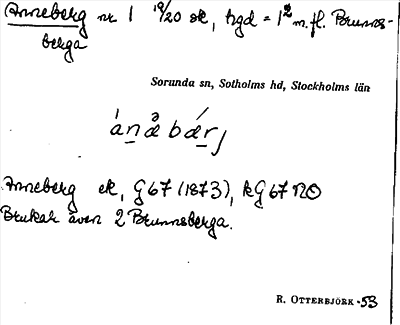 Anneberg nr 1 19/20 sk, hgd = 1² m. fl. Brunns-
berga
Sorunda sn, Sotholms hd, Stockholms län
Anneberg ek, G 67 (1873), kG 67 NO
Brukar även 2 Brunnsberga.
R. OTTERBJÖRK -53